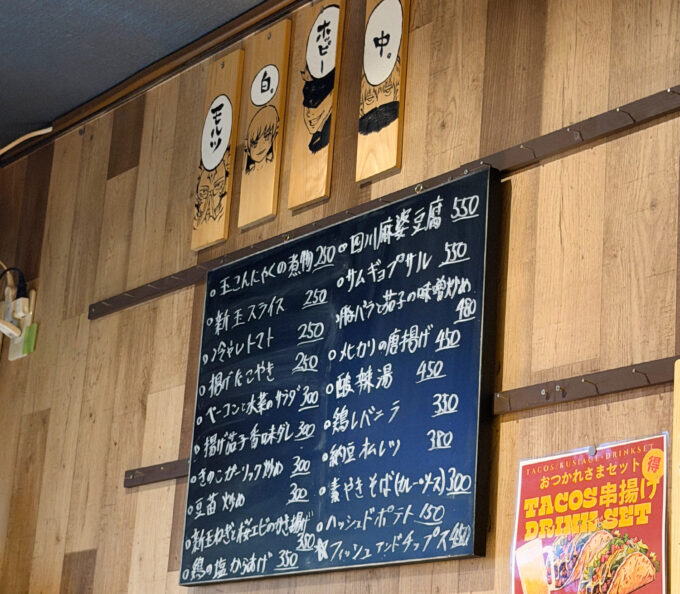 モルツ
白。
ホッピー
中。
○玉こんにゃくの煮物250
○新玉スライス 250
○冷やしトマト 250
○揚げたこやき 250
○ベーコンと水菜のサラダ300
○揚げ茄子香味ダレ300
○きのこガーリック炒め 300
○豆苗炒め 300
○新玉ねぎと桜エビのかき揚げ 350
○鶏の塩からあげ 350
○四川麻婆豆腐 550
○サムギョプサル 550
○豚バラと茄子の味噌炒め 480
○メヒカリの唐揚げ 450
○酸辣湯 450
○鶏レバニラ 350
○納豆オムレツ 380
○素やきそば(カレー・ソース)300
○ハッシュドポテト 150
フィッシュアンドチップス450
おつかれさまセット
得
TACOS串揚げ
DRINK SET